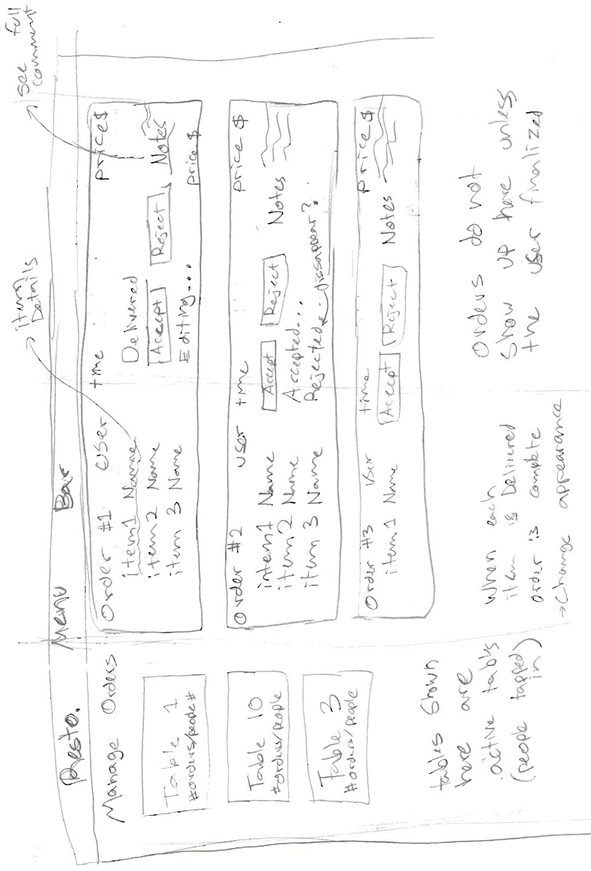 Resto.
Menu Bar
Manage Orders
Table 1
#orders/people#
Table 10
#orders/people
Table 3
#orders/people
tables shown
here are
active tables
(people tapped
in)
item
Details
see full
comment
Order #1 User time price$
item1 Name Delivered
item2 Name Accept Reject Notes
item 3 Name Editing... price $
Order #2 User time price $
intem1 Name Accept Reject Notes
item2 Name Accepted...
item 3 Name Rejected ← dissappear?..
Order #3 User time price $
item1 Name Accept Reject Notes
When each
item is Delivered
order is complete
→ Change appearance
Orders do not
Show up here unless
the user finalized